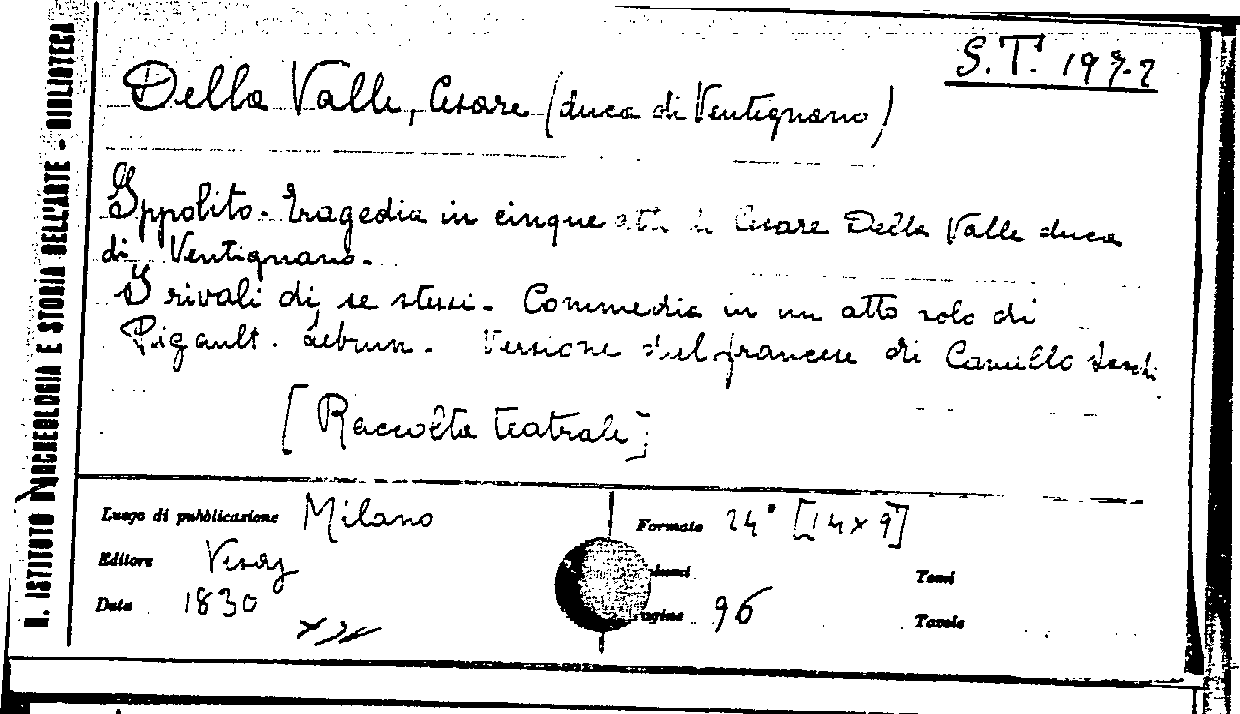 S.T. 197-2
Della Valle, Cesare (duca di Ventignano)
Ippolito. Tragedia in cinque atti di Cesare Della Valle duca
di Ventignano.
I rivali di se stessi. Commedia in un atto solo di
Pigault. Lebrun. Versione dal francese di Camillo
[Raccolta teatrale]
Luogo di pubblicazione Milano
Formato 24° [14x9]
Editore
Volumi
Tomi
Data 1830
Pagine 96
Tavole
R. ISTITUTO D'ARCHEOLOGIA E STORIA DELL'ARTE - BIBLIOTECA